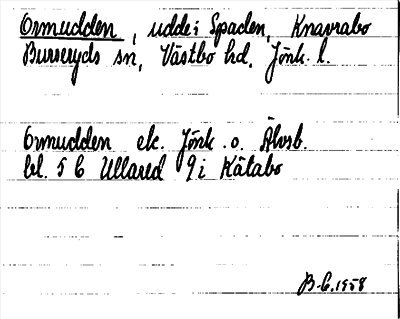 Ormudden, udde i Spaden, Knavrabo
Burseryds sn, Västbo hd, Jönk. l.
Ormudden ek. Jönk. o. Älvsb.
bl. 5 C Ullared 9 i Kåtabo
B-C. 1958